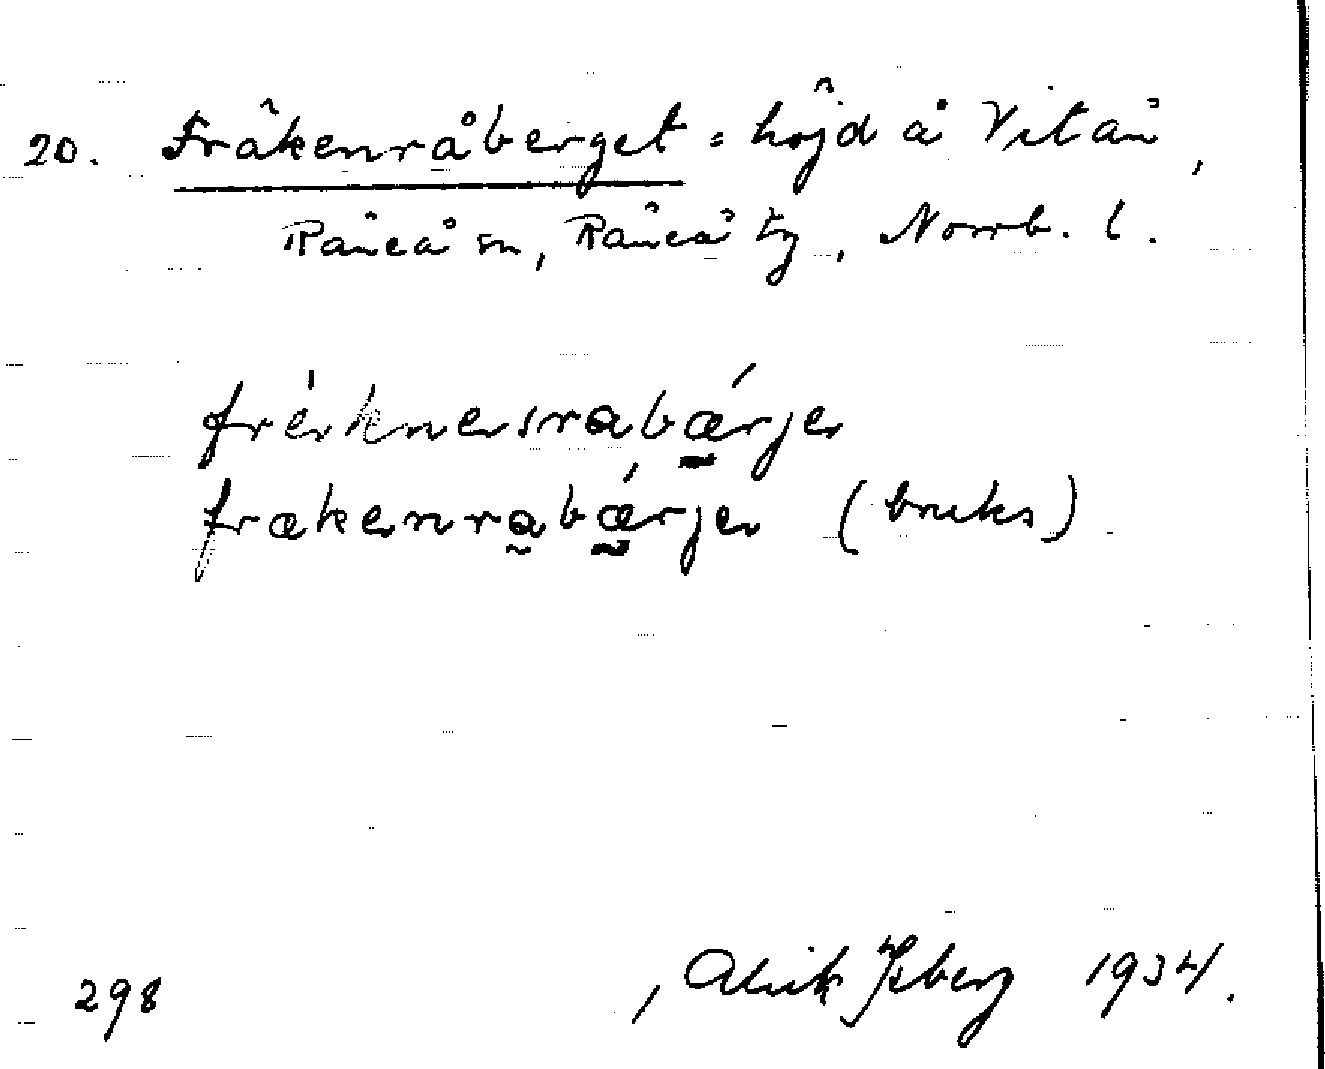 20. Fräkenråberget = höjd å Vitån,
Råneå sn, Råneå tg, Norrb. l.
frèknesrabǽrje
frækenrabǽrje (bruks)
298 Alrik Isberg 1934.